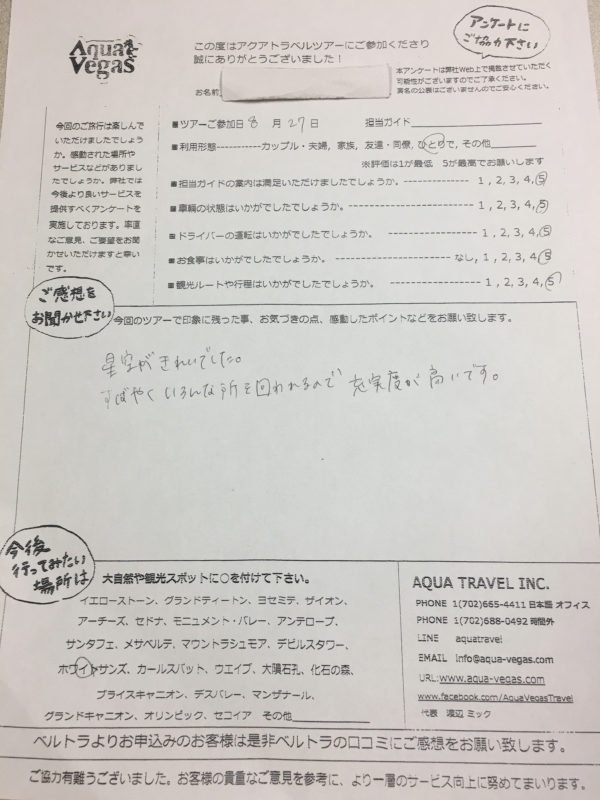 Aqua Vegas
この度はアクアトラベルツアーにご参加くださり
誠にありがとうございました！
アンケートに
ご協力下さい
本アンケートは弊社Web上で掲載させていただく
可能性がございますのでご了承ください。
実名の公表はございませんのでご安心ください。
お名前
今回のご旅行は楽しんで
いただけましたでしょう
か。感動された場所や
サービスなどがありまし
たでしょうか。弊社では
今後より良いサービスを
提供すべくアンケートを
実施しております。率直
なご意見、ご要望をお聞
かせいただけますと幸い
です。
■ツアーご参加日 8 月 27 日 担当ガイド
■利用形態-----------カップル・夫婦, 家族, 友達・同僚, ひとりで, その他
※評価は1が最低 5が最高でお願いします
■担当ガイドの案内は満足いただけましたでしょうか。 1 , 2, 3, 4, 5
■車輌の状態はいかがでしたでしょうか。 1 , 2, 3, 4, 5
■ドライバーの運転はいかがでしたでしょうか。 1 , 2, 3, 4, 5
■お食事はいかがでしたでしょうか。 なし, 1, 2, 3, 4, 5
■観光ルートや行程はいかがでしたでしょうか。 1 , 2, 3, 4, 5
ご感想を
お聞かせ下さい
今回のツアーで印象に残った事、お気づきの点、感動したポイントなどをお願い致します。
星空がきれいでした。
すばやくいろんな所を回われるので充実度が高いです。
今後
行ってみたい
場所は
大自然や観光スポットに○を付けて下さい。
イエローストーン、グランドティートン、ヨセミテ、ザイオン、
アーチーズ、セドナ、モニュメント・バレー、アンテロープ、
サンタフェ、メサベルテ、マウントラシュモア、デビルスタワー、
ホワイトサンズ、カールスバット、ウエイブ、大隕石孔、化石の森、
ブライスキャニオン、デスバレー、マンザナール、
グランドキャニオン、オリンピック、セコイア その他
AQUA TRAVEL INC.
PHONE 1(702)665-4411 日本語 オフィス
PHONE 1(702)688-0492 時間外
LINE aquatravel
EMAIL info@aqua-vegas.com
URL:www.aqua-vegas.com
www.facebook.com/AquaVegasTravel
代表 渡辺 ミック
ベルトラよりお申込みのお客様は是非ベルトラの口コミにご感想をお願い致します。
ご協力有難うございました。お客様の貴重なご意見を参考に、より一層のサービス向上に努めてまいります。